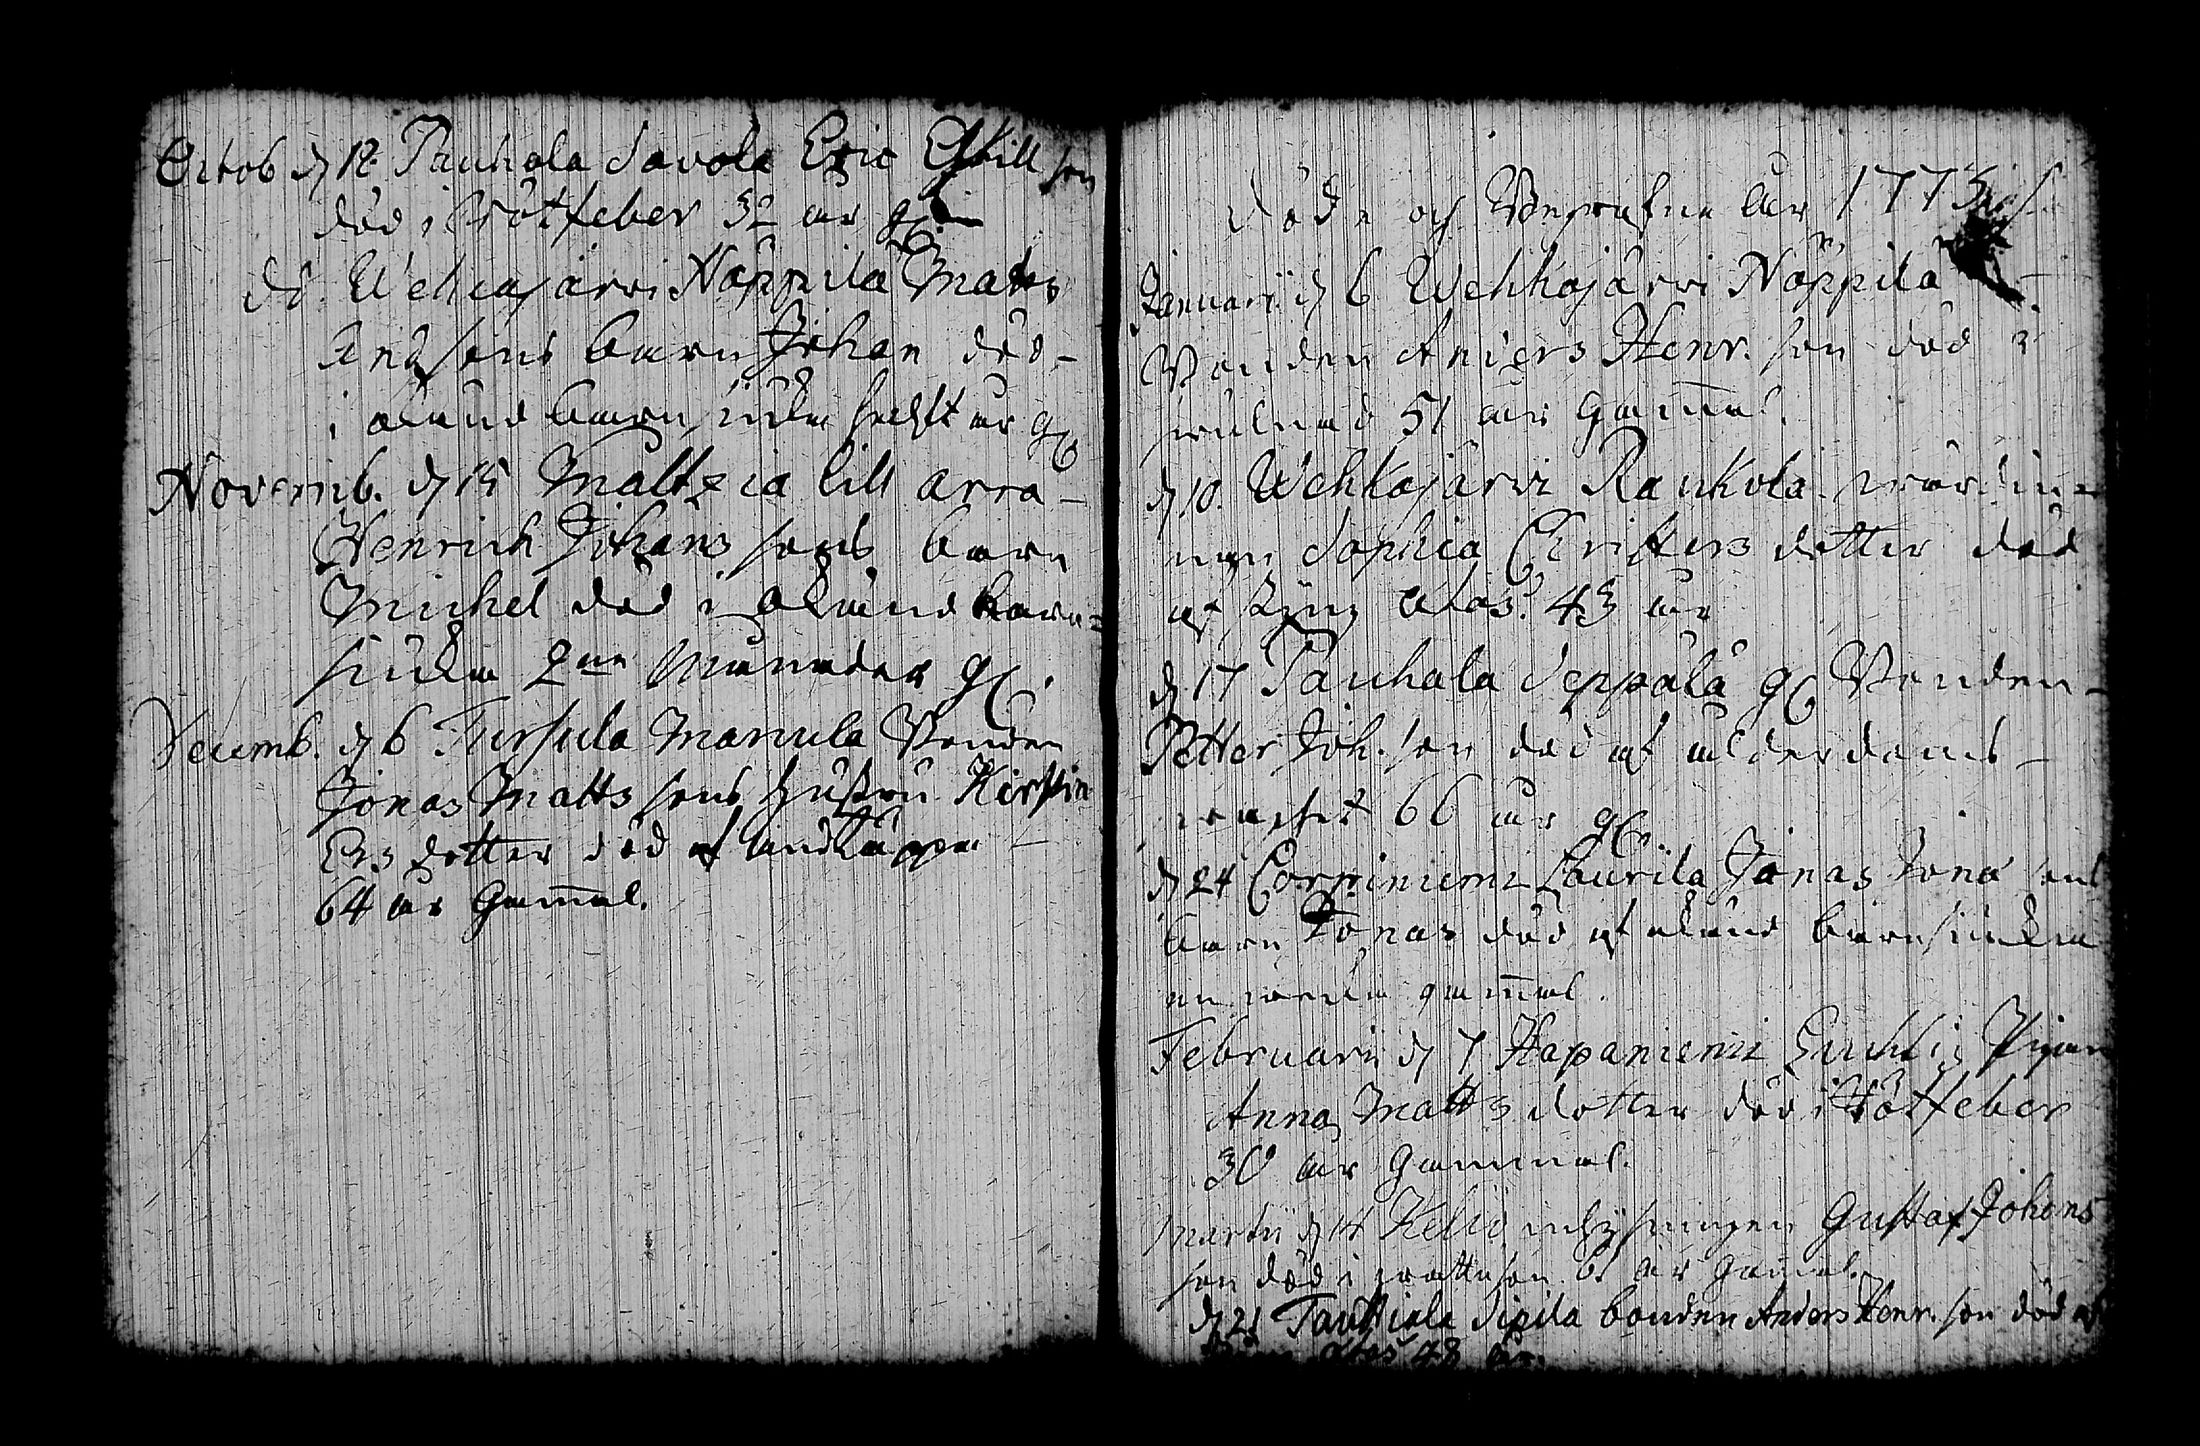 Octob d 18 Pauhala Savola Eric Eskill son
död i Rötfeber 32 år gl
dö. Wehcajärvi Näppilä Matts
And sons barn Johan död
i okänd barnsiuka helft år gl
Novemb. d 15 Maltzia lill arra
Henrich Johans sons barn
Michel död i okänd barn=
siuka 2ne månader gl.
Decemb. d 6 Tursula Manula Bonden
Jonas Matts sons hustru Kirstin
Ers dotter död af andtäppa
64 år Gammal.
Döde och Begrafne år 1773
Januarii d 6 Wehkajärvi Näppilä
Bonden Anders Henr. son död i
51 år Gammal.
d 10. Wehkajärvi Raukola
nan Sophia Christers dotter död
af styng Ætas. 43 år
d 17 Pauhala Seppälä gl Bonden
Petter Joh. son död af ålderdoms
66 år gl
d 24 Corpiniemi Laurila Jonas Jona sons
barn Jonas död af okänd barnsiuka
en wecka gammal.
Februarii d 7 Hapaniemi Pigan
Anna Matts dotter död i Rötfeber
30 år Gammal.
Martii d 14 Kelio inhysingen Gustaf Johans
son död i 61 år Gammal.
d 21 Tauttiala Sipila bonden Anders Henr. son död af
Ætas 48 år.